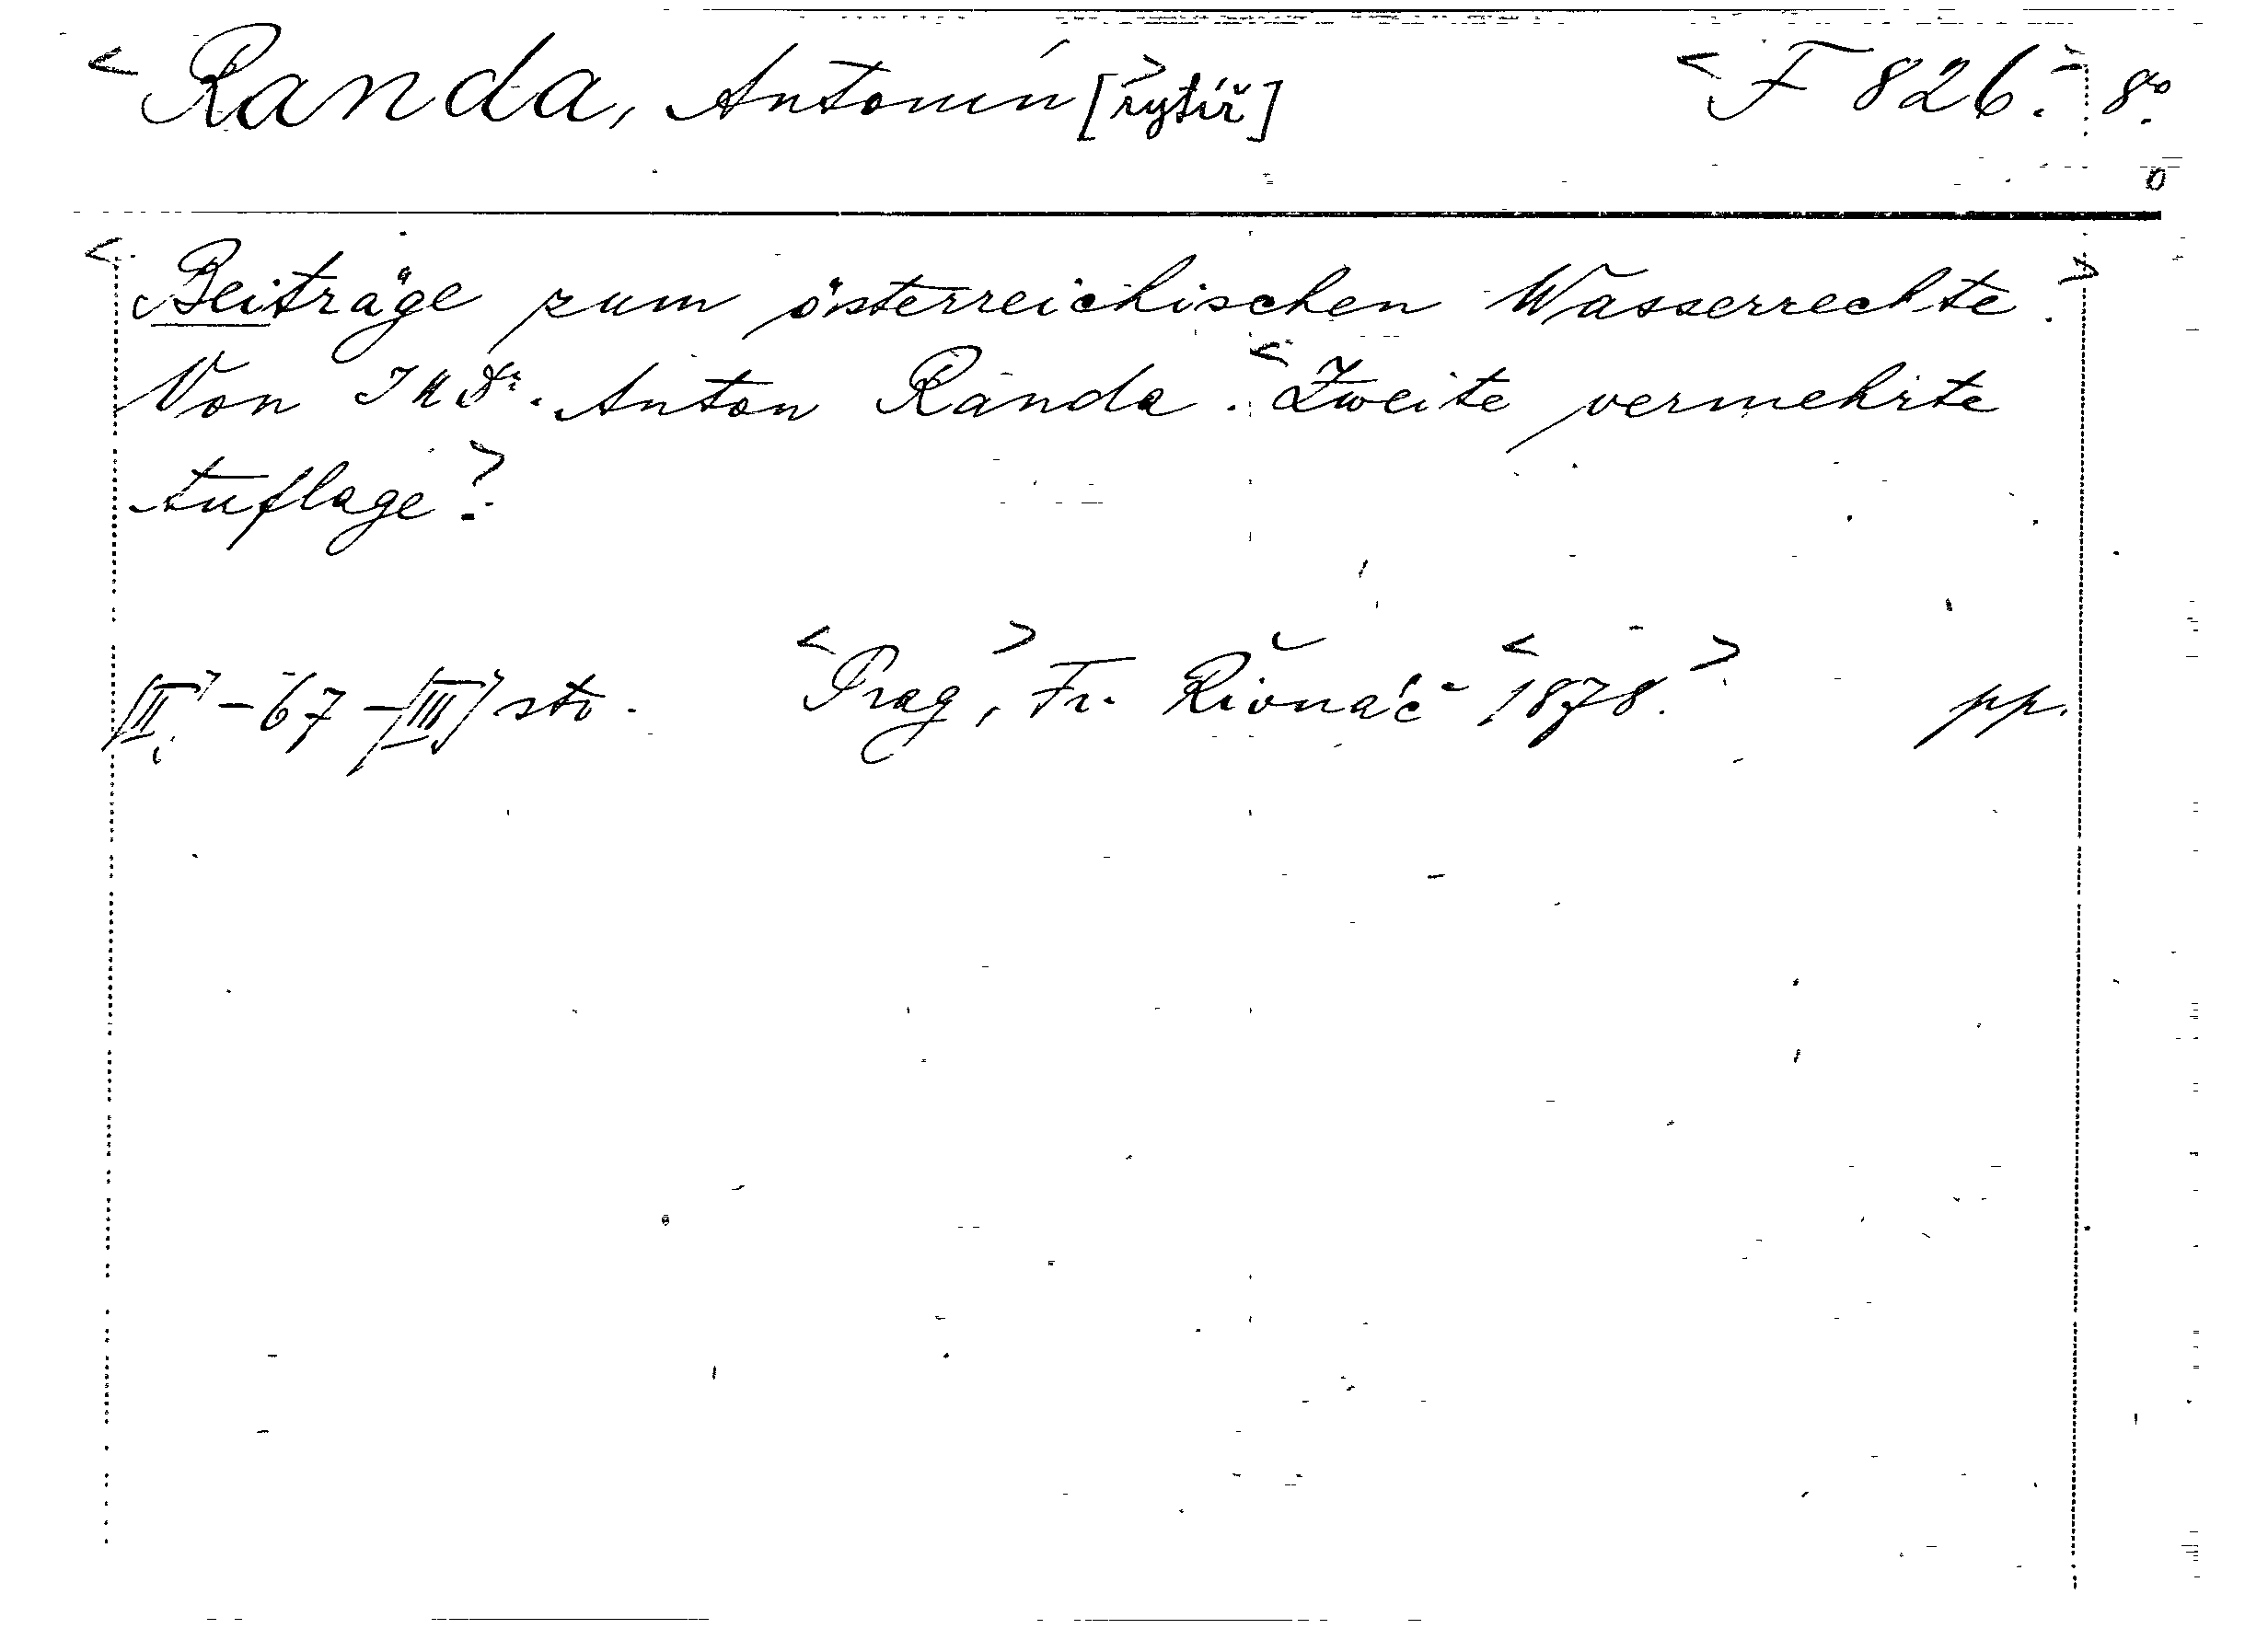 <Randa, Antonín> [rytíř] <F 826.> 8°.
0
<Beiträge zum österreichischen Wasserrechte.>
Von JUDr. Anton Randa. <Zweite vermehrte
Auflage>.
[II] - 67 - [III] str. <Prag,> Fr. Řivnáč <1878.> pp.